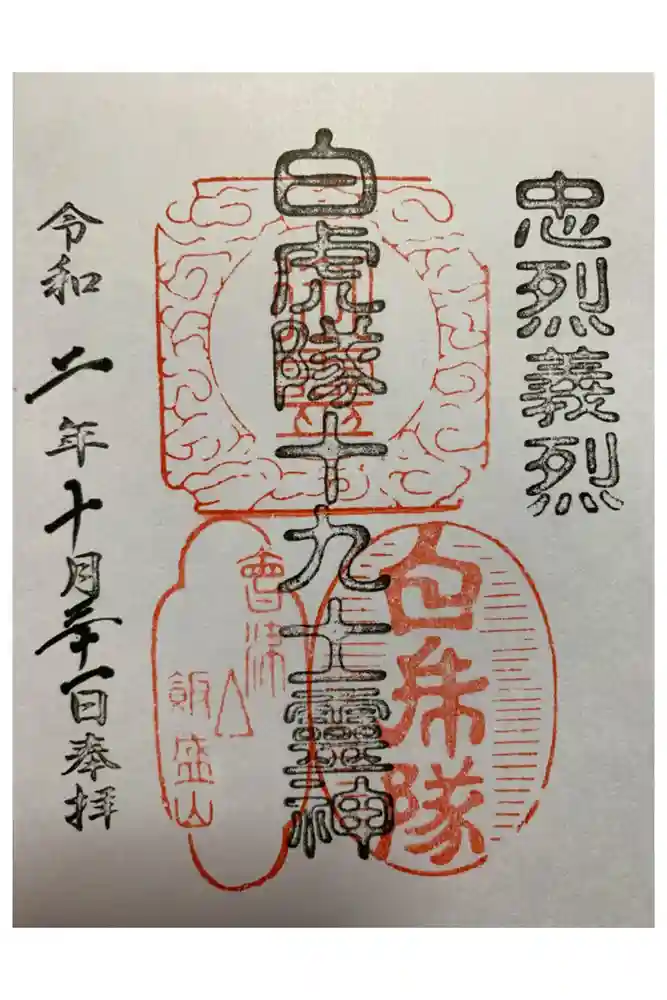 忠烈義烈
白虎隊十九士靈神
白虎隊
會津
飯盛山
令和二年十月廿一日奉拝